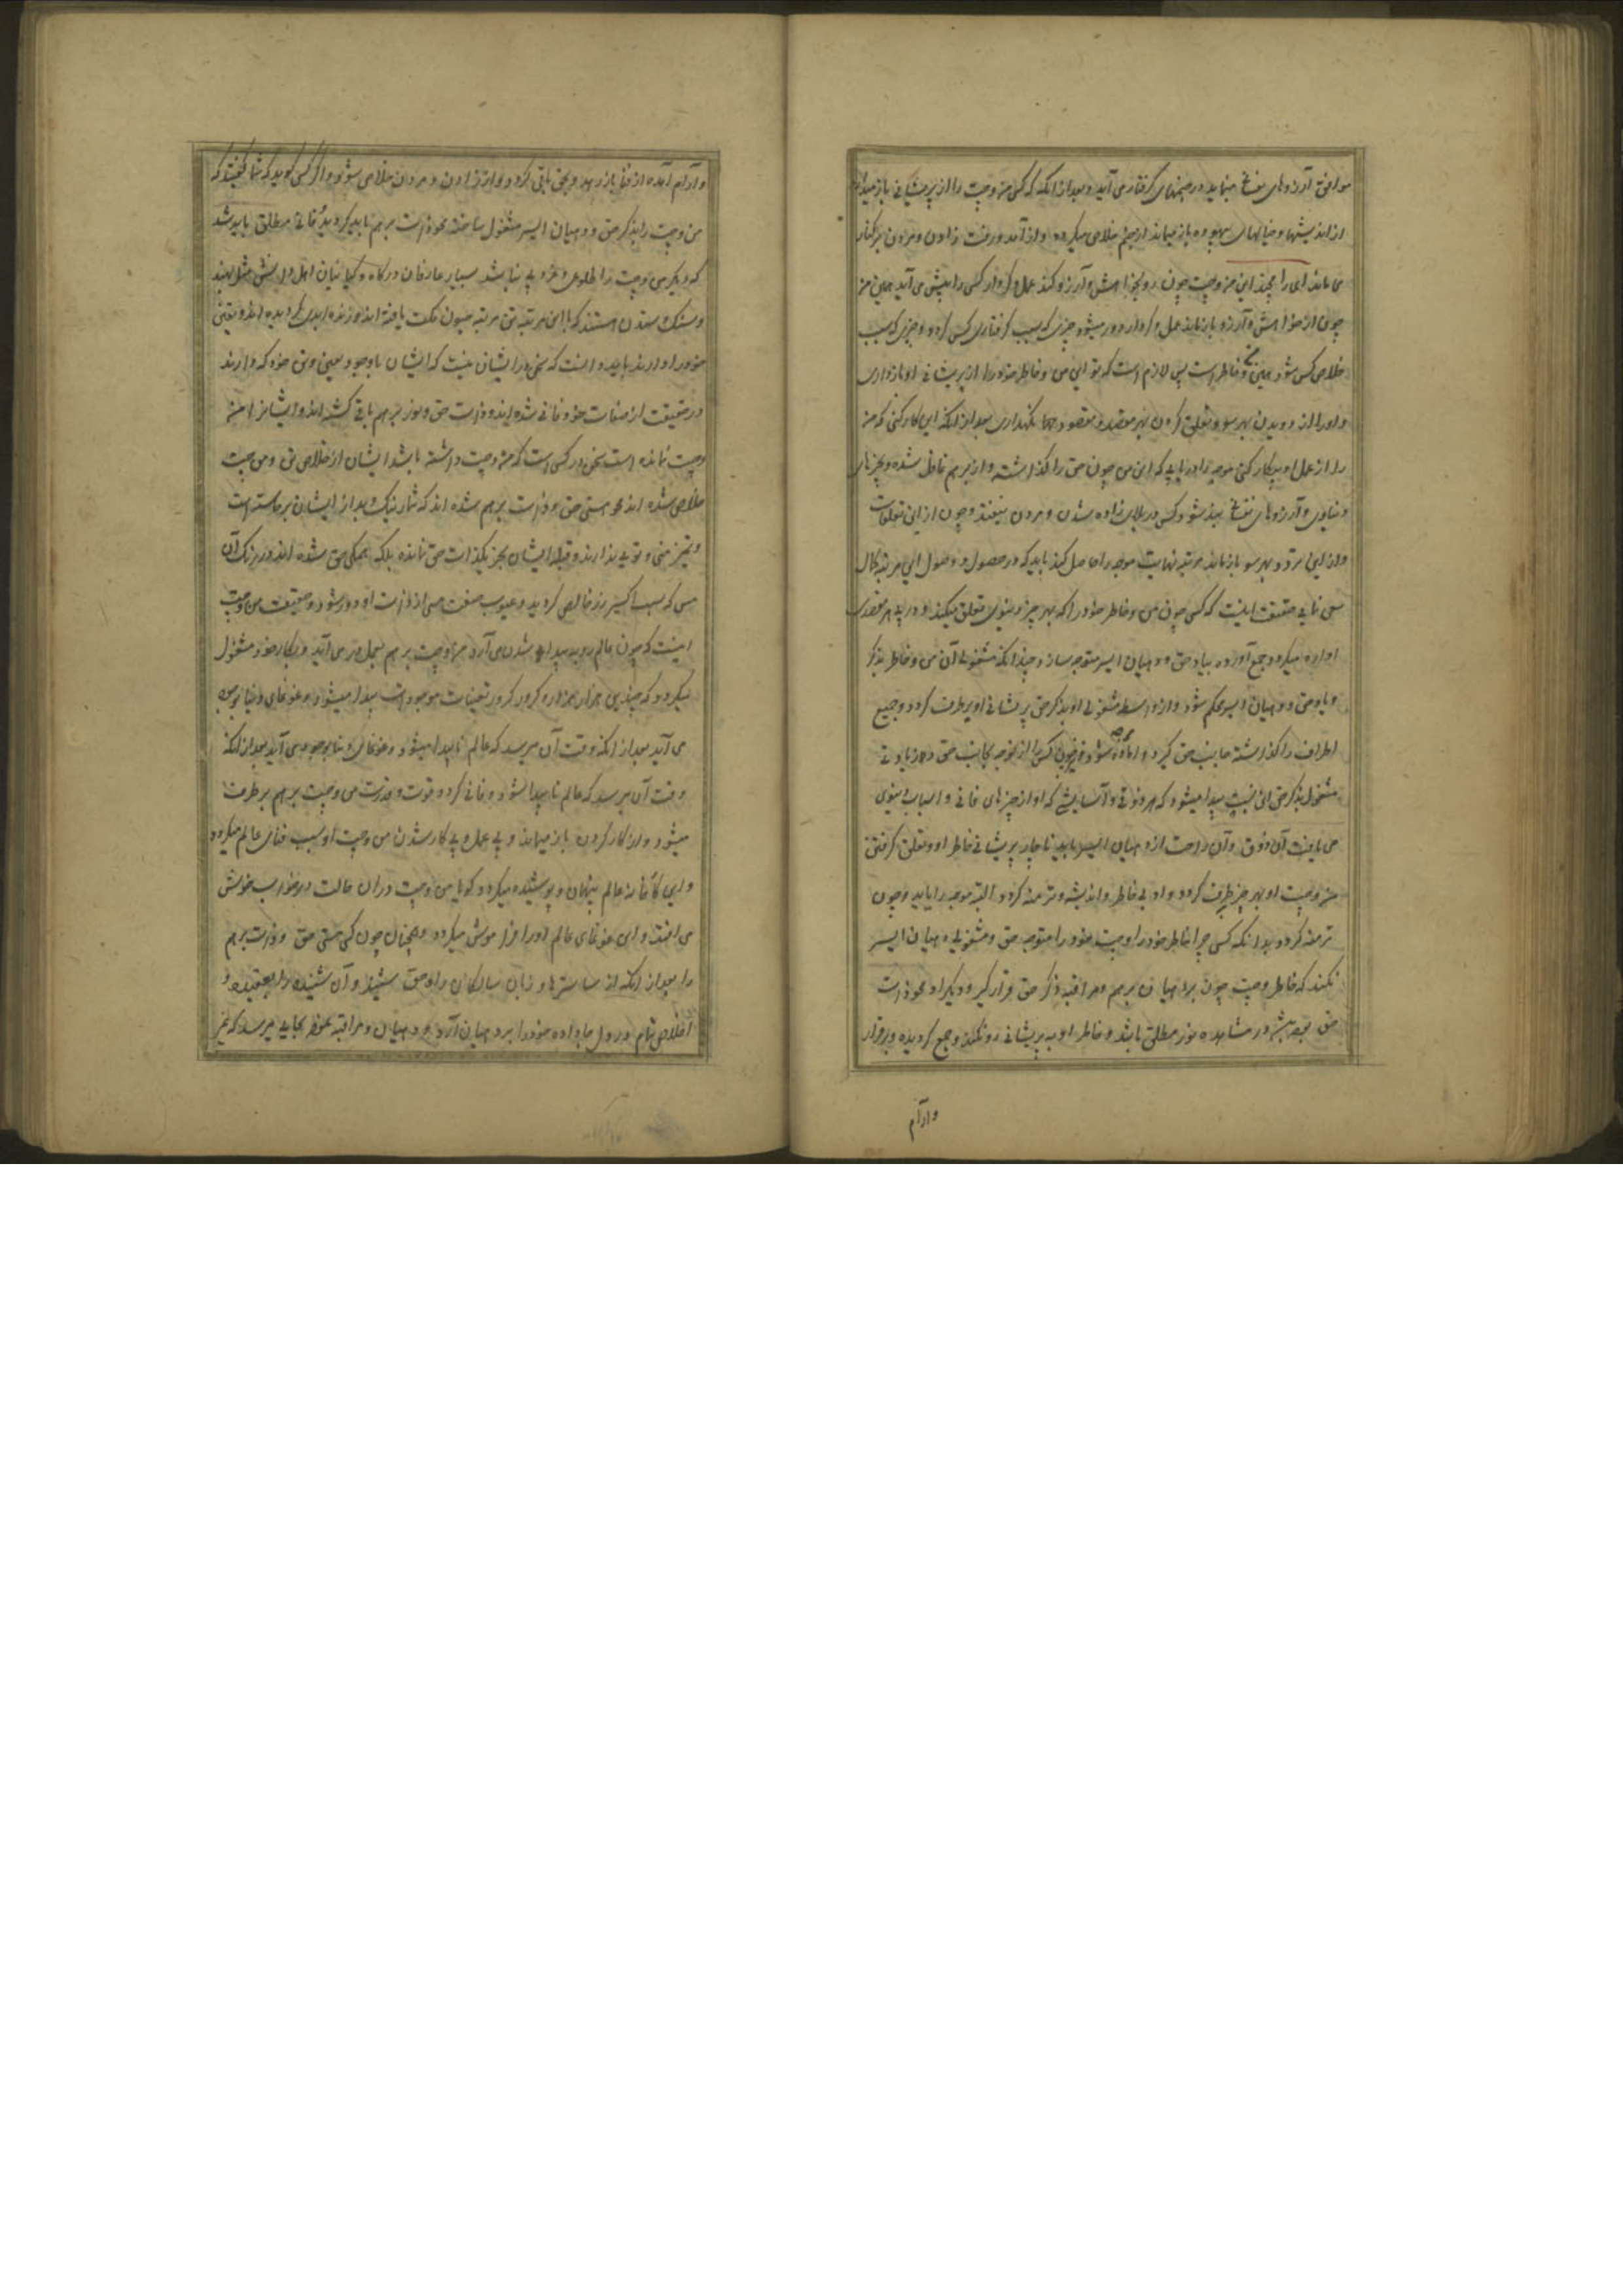 موافق آرزوهای نفسانی مینماید در جهنمهای گرفتار می آید و بعد از انکه کسی من و چت را از پریشانی باز میدارد
از اندیشها و خیالهای بیهوده باز میماند از جهنم خلاص میگردد و از آمد و رفت زادن و مردن برکنار
می ماند ای رامچند این من و چت چون رو بخواهش و آرزو کند عمل و کردار کسی را پیش می آید همین من
چون از خواهش و آرزو باز ماند عمل و کردار دور میشود چیزی که سبب گرفتاری کسی گردد و چیزی که سبب
خلاصی کسی شود همین من و خاطر است پس لازم است که تو این من و خاطر خود را از پریشانی او باز داری
و او را از دویدن بهر سو و تعلق کردن بهر مقصد و مقصودها نگهداری بعد از انکه این کار کنی که من
را از عمل او بیکار کنی موجه را دریابی که این من چون حق را گذاشته و از برهم غافل شده و بچیزهای
دنیاوی و آرزوهای نفسانی بند شود کسی در بلای زاده شدن و مردن بیفتد و چون از این تعلقات
و از این تردد بهر سو باز ماند مرتبه نهایت موجه را حاصل کند باید که در حصول و وصول این مرتبه کمال
سعی نمایی حقیقت اینست که کسی چون من و خاطر خود را که بهر چیز دنیوی تعلق میکند و در پی هر مقصدی
اواره میگردد جمع آورده بیاد حق و دهیان ایسر متوجه سازد چندانکه مشغولی آن من و خاطر بذکر
و یاد حق و دهیان ایسر محکم شود و از واسطه مشغولی او بذکر حق پریشانی او برطرف گردد و جمیع
اطراف را گذاشته جانب حق گیرد و
مشغول بذکر حق این نسبت پیدا میشود که هر ذوقی و آسایشی که او از چیزهای فانی و اسباب دنیوی
می یافت آن ذوق و آن راحت از دهیان ایسر یابد ناچار پریشانی خاطر او و تعلق گرفتن
من و چت او بهر چیز برطرف گردد و او بی خاطر و اندیشه و ترمنه گردد البته موجه را یابد و چون
ترمنه گردد بدانکه کسی چرا خاطر خود را و چت خود را متوجه حق و مشغولی دهیان ایسر
نکند که خاطر و چت چون بدهیان برهم و مراقبه ذکر حق قرار گیرد و دیگر او محو ذات
حق بوده همیشه در مشاهده نور مطلق باشد و خاطر او به پریشانی رو نکند و جمع گردیده و برقرار
وارام
و آرام آمده از فنا باز رهد و بحق باقی گردد و از زادن و مردن خلاص شود و اگر کسی گوید که شما گفتید که
من و چت را بذکر حق و دهیان ایسر مشغول ساخته محو ذات برهم باید گردید و فانی مطلق باید شد
که دیگر من و چت را طلوعی و بروزی نباشد بسیار عارفان درگاه و گیانیان اهل دل بشن مثل بهند
و سنک و سندن هستند که با این مرتبه تن مرتبه جیون مکت یافته اند و زنده ابدی گردیده اند و یقین
خود را دارند باید دانست که سخن در ایشان نیست که ایشان باوجود همین من خود که دارند
در حقیقت از صفات خود فانی شده اند و ذات حق و نور برهم باقی گشته اند و ایشانرا من
و چت نمانده است سخن در کسی است که من و چت داشته باشد ایشان از خلاص تن و من و چت
خلاص شده اند محو هستی حق و ذات برهم شده اند که شمار نیک و بد از ایشان برخاسته است
و تمیز منی و تویی ندارند و قبله ایشان بجز یک ذات حق نمانده بلکه همگی حق شده اند و زیر رنگ آن
مس که بسبب اکسیر زر خالص گردید و عیوب صفت مس از ذات او دور شود و حقیقت من و چت
اینست که چون عالم رو به پیدا شدن می آرد من و چت برهم بعمل در می آید و بکار خود مشغول
میگردد که چندین هزار هزاره کرور کرور تعینات موجودات پیدا میشود و غوغای دنیا بوجود
می آید بعد از انکه وقت آن میرسد که عالم ناپیدا میشود و غوغای دنیا بوجود می آید بعد از انکه
وقت آن میرسد که عالم ناپیدا شود و فانی گردد قوت و قدرت من و چت برهم برطرف
میشود و از کار کردن باز میماند و بی عمل و بی کار شدن من و چت او سبب فنای عالم میگردد
و این کارخانه عالم پنهان و پوشیده میگردد گویا من و چت در آن حالت در خواب خوش
می افتد و این غوغای عالم او را فراموش میگردد و همچنان چون کسی هستی حق و ذات برهم
را بعد از انکه از ساسترها و زبان سالکان راه حق شنید و آن شنیده را بعقیده و
اخلاص تمام در دل جا داده خود را بر دهیان آرد و دهیان و مراقبه محض بجایی میرسد که غیر